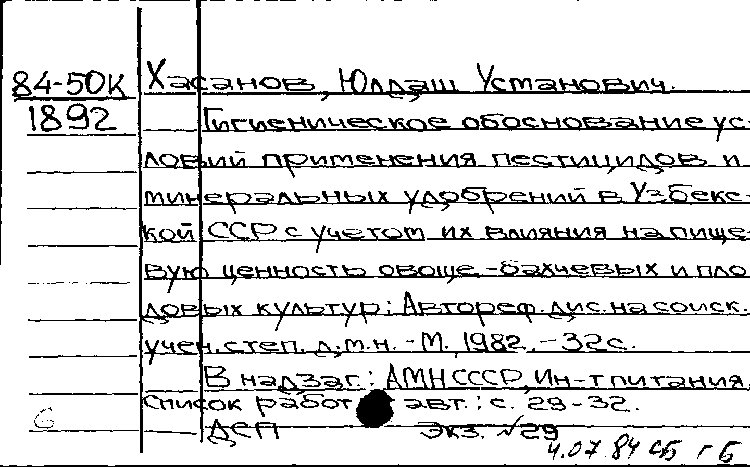 84-50К Хасанов, Юлдаш Усманович.
1892 Гигиеническое обоснование ус-
ловий применения пестицидов и
минеральных удобрений в Узбекс-
кой ССР с учетом их влияния на пище-
вую ценность овоще-бахчевых и пло-
довых культур: Автореф. дис. на соиск.
учен. степ. д.м.н. - М., 1982. - 32с.
В надзаг.: АМН СССР, Ин-т питания.
Список работ авт.: с. 29-32.
ДСП Экз. №29
4.07.84 СБ г Б